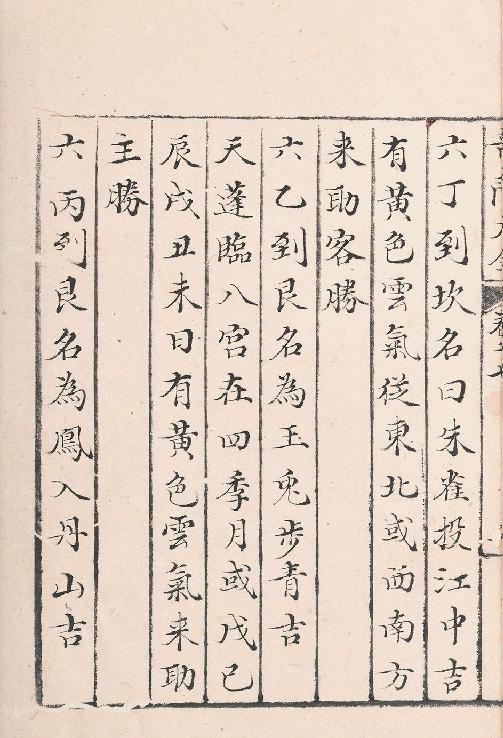 六丁到坎名曰朱雀投江中吉
有黄色雲氣從東北或西南方
来助客勝
六乙到艮名為玉兎步青吉
天蓬臨八宫在四季月或戊己
辰戌丑未日有黄色雲氣来助
主勝
六丙到艮名為鳳入丹山吉